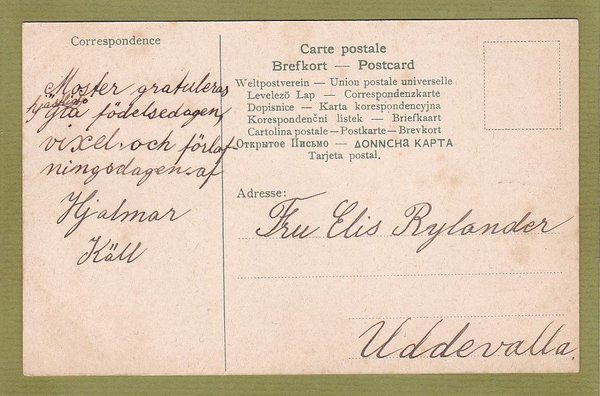 Correspondence
Moster gratuleras
hjärtligt
på födelsedagen,
vixel och förlof-
ningsdagen af
Hjalmar
Käll
Carte postale
Brefkort — Postcard
Weltpostverein — Union postale universelle
Levelező Lap — Correspondenzkarte
Dopisnice — Karta korespondencyjna
Korespondenční listek — Briefkaart
Cartolina postale — Postkarte — Brevkort
Открытое Письмо — ΔΟΝΝCHα ΚΑΡΤΑ
Tarjeta postal.
Adresse:
Fru Elis Rylander
Uddevalla.